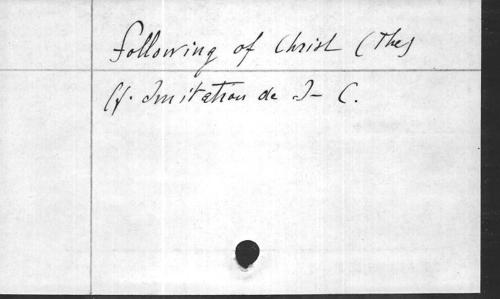 Following of Christ (The)
Cf. Imitation de J-C.